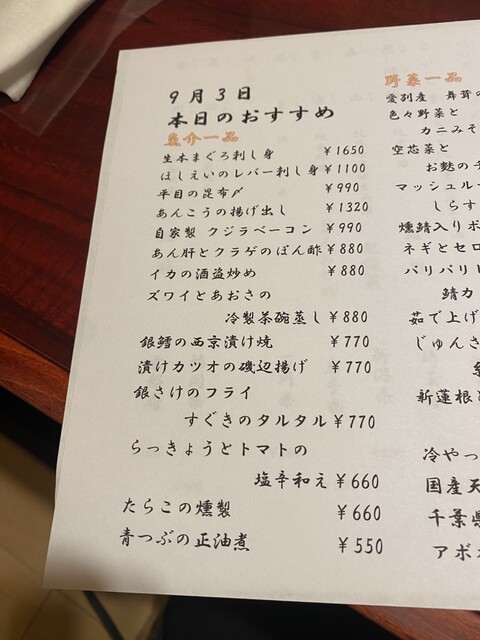 9月3日
本日のおすすめ
魚介一品
生本まぐろ刺し身 ¥1650
ほしえいのレバー刺し身 ¥1100
平目の昆布〆 ¥990
あんこうの揚げ出し ¥1320
自家製 クジラベーコン ¥990
あん肝とクラゲのぽん酢 ¥880
イカの酒盗炒め ¥880
ズワイとあおさの
冷製茶碗蒸し ¥880
銀鱈の西京漬け焼 ¥770
漬けカツオの磯辺揚げ ¥770
銀さけのフライ
すぐきのタルタル ¥770
らっきょうとトマトの
塩辛和え ¥660
たらこの燻製 ¥660
青つぶの正油煮 ¥550
野菜一品
愛別産 舞茸の
色々野菜と
カニみそ
空芯菜と
お麩のチ
マッシュルー
しらす
燻鯖入りポ
ネギとセロ
パリパリピ
鯖カ
茹で上げ
じゅんさ
新蓮根と
冷やっ
国産天
千葉県
アボカ